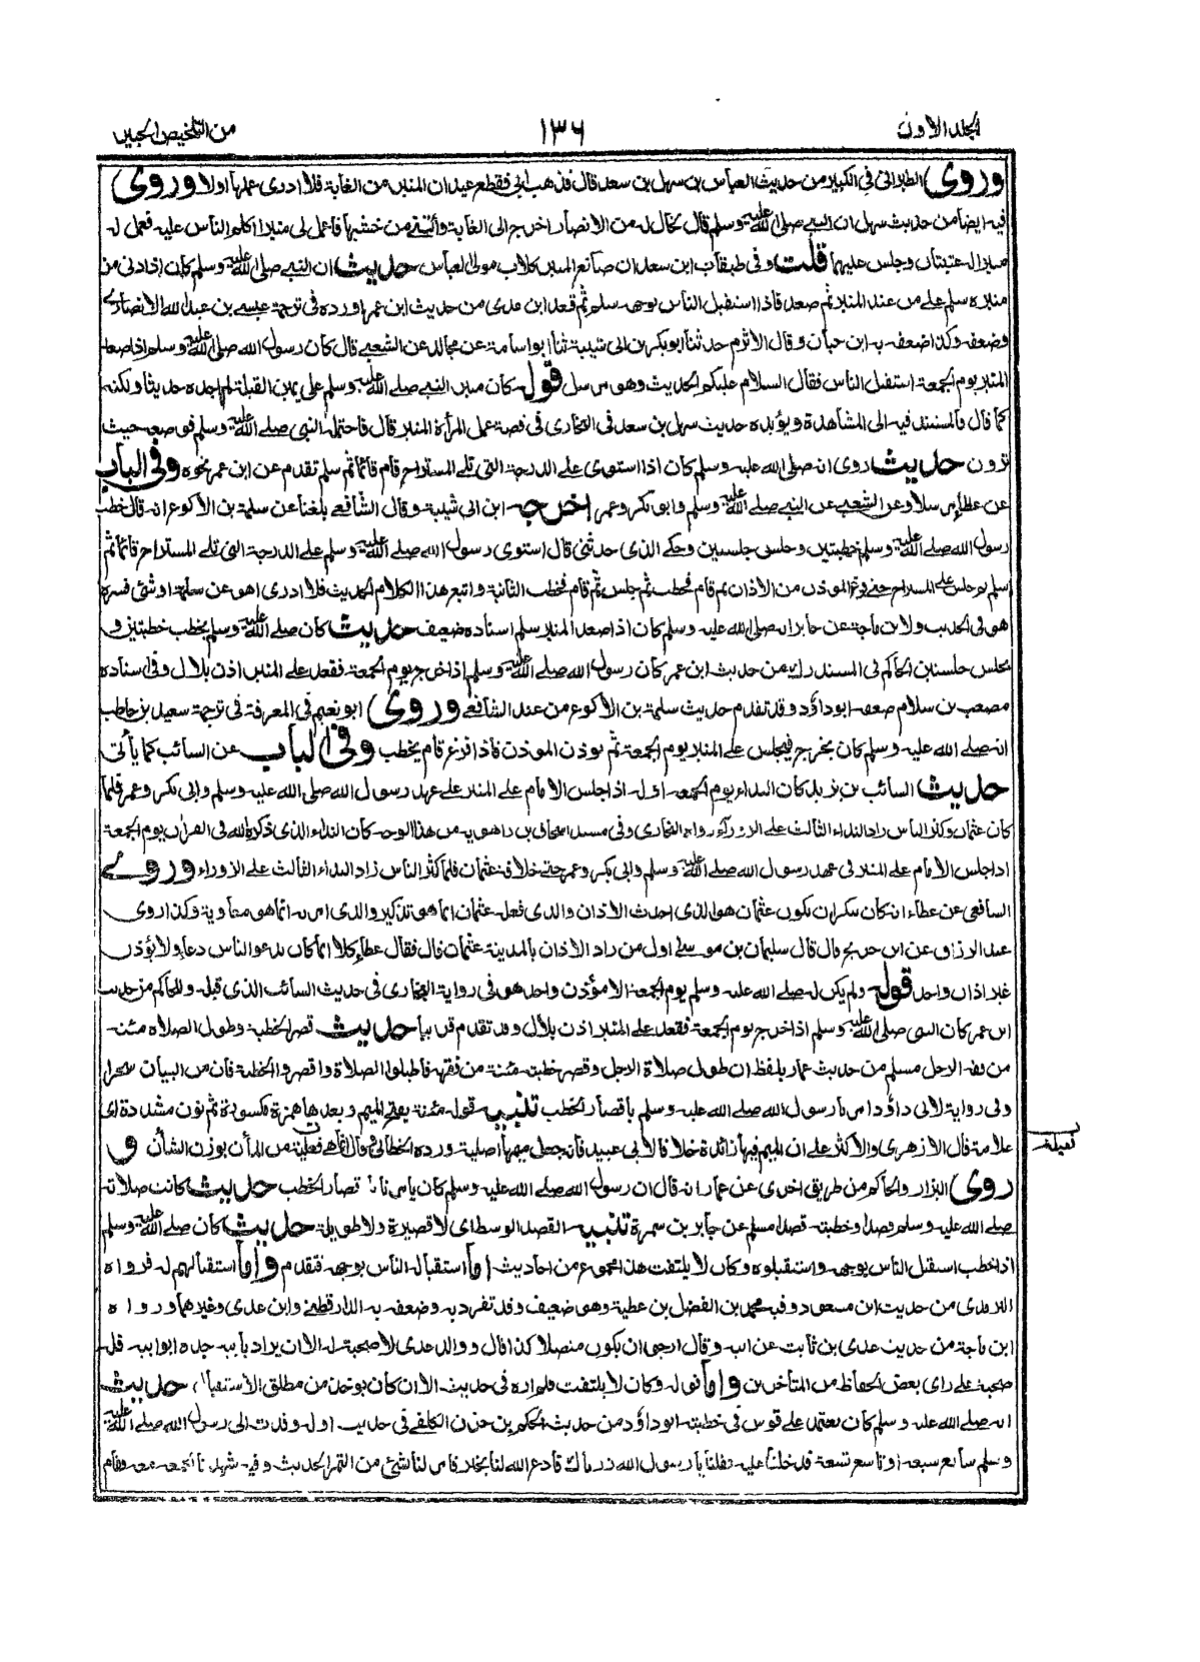 المجلد الاول
١٣٦
من التلخيص الحبير
وروى الطبراني في الكبير من حديث العباس بن سهل بن سعد قال فذهب ابى فقطع عيدان المنبر من الغابة فلا ادرى عملها اولا وروى
فيه ايضا من حديث سهل ان النبي صلى الله عليه وسلم قال لخال له من الانصار اخرج الى الغابة وأتني من خشبها فاعمل لى منبرا اكلم الناس عليه فعمل له
منبرا له عتبتان وجلس عليهما قلت وفى طبقات ابن سعد ان صانع المنبر كلاب مولى العباس حديث ان النبي صلى الله عليه وسلم كان اذا دنى من
منبره سلم على من عند المنبر ثم صعد فاذا استقبل الناس بوجهه سلم ثم قعد ابن عدى من حديث ابن عمر اورده فى ترجمة عيسى بن عبد الله الانصارى
وضعفه وكذا ضعفه به ابن حبان وقال الاثرم حدثنا ابو بكر بن ابى شيبة ثنا ابو اسامة عن مجالد عن الشعبي قال كان رسول الله صلى الله عليه وسلم اذا صعد
المنبر يوم الجمعة استقبل الناس فقال السلام عليكم الحديث وهو مرسل قوله كان منبر النبي صلى الله عليه وسلم على يمين القبلة لم اجده حديثا ولكنه
كما قال فالمستند فيه الى المشاهدة ويؤيده حديث سهل بن سعد فى البخارى فى قصة عمل المرأة المنبر قال فاحتمله النبي صلى الله عليه وسلم فوضعه حيث
ترون حديث روى انه صلى الله عليه وسلم كان اذا استوى على الدرجة التى تلى المستراح قام قائما ثم سلم تقدم عن ابن عمر نحوه وفى الباب
عن عطاء مرسلا وعن الشعبي عن النبي صلى الله عليه وسلم وابو بكر وعمر اخرجه ابن ابى شيبة وقال الشافعى بلغنا عن سلمة بن الاكوع انه قال خطب
رسول الله صلى الله عليه وسلم خطبتين وجلس جلستين وحكى الذى حدثنى قال استوى رسول الله صلى الله عليه وسلم على الدرجة التى تلى المستراح قائما ثم
سلم ثم جلس على المستراح حتى فرغ الموذن من الاذان ثم قام فخطب ثم جلس ثم قام فخطب الثانية واتبع هذا الكلام الحديث فلا ادرى اهو عن سلمة او شئ فسره
هو فى الحديث ولابن ماجة عن جابر انه صلى الله عليه وسلم كان اذا صعد المنبر سلم اسناده ضعيف حديث كان صلى الله عليه وسلم يخطب خطبتين و
يجلس جلستين الحاكم فى المستدرك من حديث ابن عمر كان رسول الله صلى الله عليه وسلم اذا خرج يوم الجمعة فقعد على المنبر اذن بلال وفى اسناده
مصعب بن سلام ضعفه ابوداؤد وقد تقدم حديث سلمة بن الاكوع من عند الشافعى وروى ابو نعيم فى المعرفة فى ترجمة سعيد بن حاطب
انه صلى الله عليه وسلم كان يخرج فيجلس على المنبر يوم الجمعة ثم يوذن الموذن فاذا فرغ قام يخطب وفى الباب عن السائب كما يأتى
حديث السائب بن يزيد كان النداء يوم الجمعة اوله اذا جلس الامام على المنبر على عهد رسول الله صلى الله عليه وسلم وابى بكر وعمر فلما
كان عثمان وكثر الناس زاد النداء الثالث على الزوراء رواه البخارى وفى مسند اسحاق بن راهويه من هذا الوجه كان النداء الذى ذكره الله فى القران يوم الجمعة
اذا جلس الامام على المنبر فى عهد رسول الله صلى الله عليه وسلم وابى بكر وعمر حتى خلافة عثمان فلما كثر الناس زاد النداء الثالث على الزوراء وروى
الشافعى عن عطاء انه كان ينكر ان يكون عثمان هو الذى احدث الاذان والذى فعله عثمان انما هو تذكير والذى امر به انما هو معاوية وكذا روى
عبد الرزاق عن ابن جريج قال قال سليمان بن موسى اول من زاد الاذان بالمدينة عثمان قال فقال عطاء كلا انما كان يدعو الناس دعاء ولا يؤذن
غير اذان واحد قوله ولم يكن له صلى الله عليه وسلم يوم الجمعة الا مؤذن واحد هو فى رواية البخارى فى حديث السائب الذى قبله وللحاكم من حديث
ابن عمر كان النبي صلى الله عليه وسلم اذا خرج يوم الجمعة فقعد على المنبر اذن بلال وقد تقدم قريبا حديث قصر الخطبة وطول الصلاة مئنة
من فقه الرجل مسلم من حديث عمار بلفظ ان طول صلاة الرجل وقصر خطبته مئنة من فقهه فاطيلوا الصلاة واقصروا الخطبة فان من البيان سحرا
وفى رواية لابى داؤد امرنا رسول الله صلى الله عليه وسلم باقصار الخطب تنبيه قوله مئنة بفتح الميم وبعدها همزة مكسورة ثم نون مشددة اى
علامة قال الازهرى والاكثر على ان الميم فيها زائدة خلافا لابى عبيد فانه جعل ميمها اصلية ورده الخطابى وقال انما هى فعيلة من المأن بوزن الشأن و
فعيلة
روى البزار والحاكم من طريق اخرى عن عمار انه قال ان رسول الله صلى الله عليه وسلم كان يامرنا باقصار الخطب حديث كانت صلاته
صلى الله عليه وسلم قصدا وخطبته قصدا مسلم عن جابر بن سمرة تنبيه القصد الوسط اى لا قصيرة ولا طويلة حديث كان صلى الله عليه وسلم
اذا خطب استقبل الناس بوجهه واستقبلوه وكان لا يلتفت هذا مجموع من احاديث اما استقبال الناس بوجهه فتقدم واما استقبالهم له فرواه
الترمذى من حديث ابن مسعود وفيه محمد بن الفضل بن عطية وهو ضعيف وقد تفرد به وضعفه به الدارقطنى وابن عدى وغيرهما ورواه
ابن ماجة من حديث عدى بن ثابت عن ابيه وقال ارجو ان يكون متصلا كذا قال ووالد عدى لا صحبة له الا ان يراد بابيه جده ابو ابيه فله
صحبة على راى بعض الحفاظ من المتأخرين واما قوله وكان لا يلتفت فلم اره فى حديث الا ان كان يوخذ من مطلق الاستقبال حديث
انه صلى الله عليه وسلم كان يعتمد على قوس فى خطبته ابوداؤد من حديث الحكم بن حزن الكلفى فى حديث اوله وفدت الى رسول الله صلى الله عليه
وسلم سابع سبعة او تاسع تسعة فدخلنا عليه فقلنا يا رسول الله زرناك فادع الله لنا بخير فامر لنا بشئ من التمر الحديث وفيه شهدنا الجمعة معه فقام